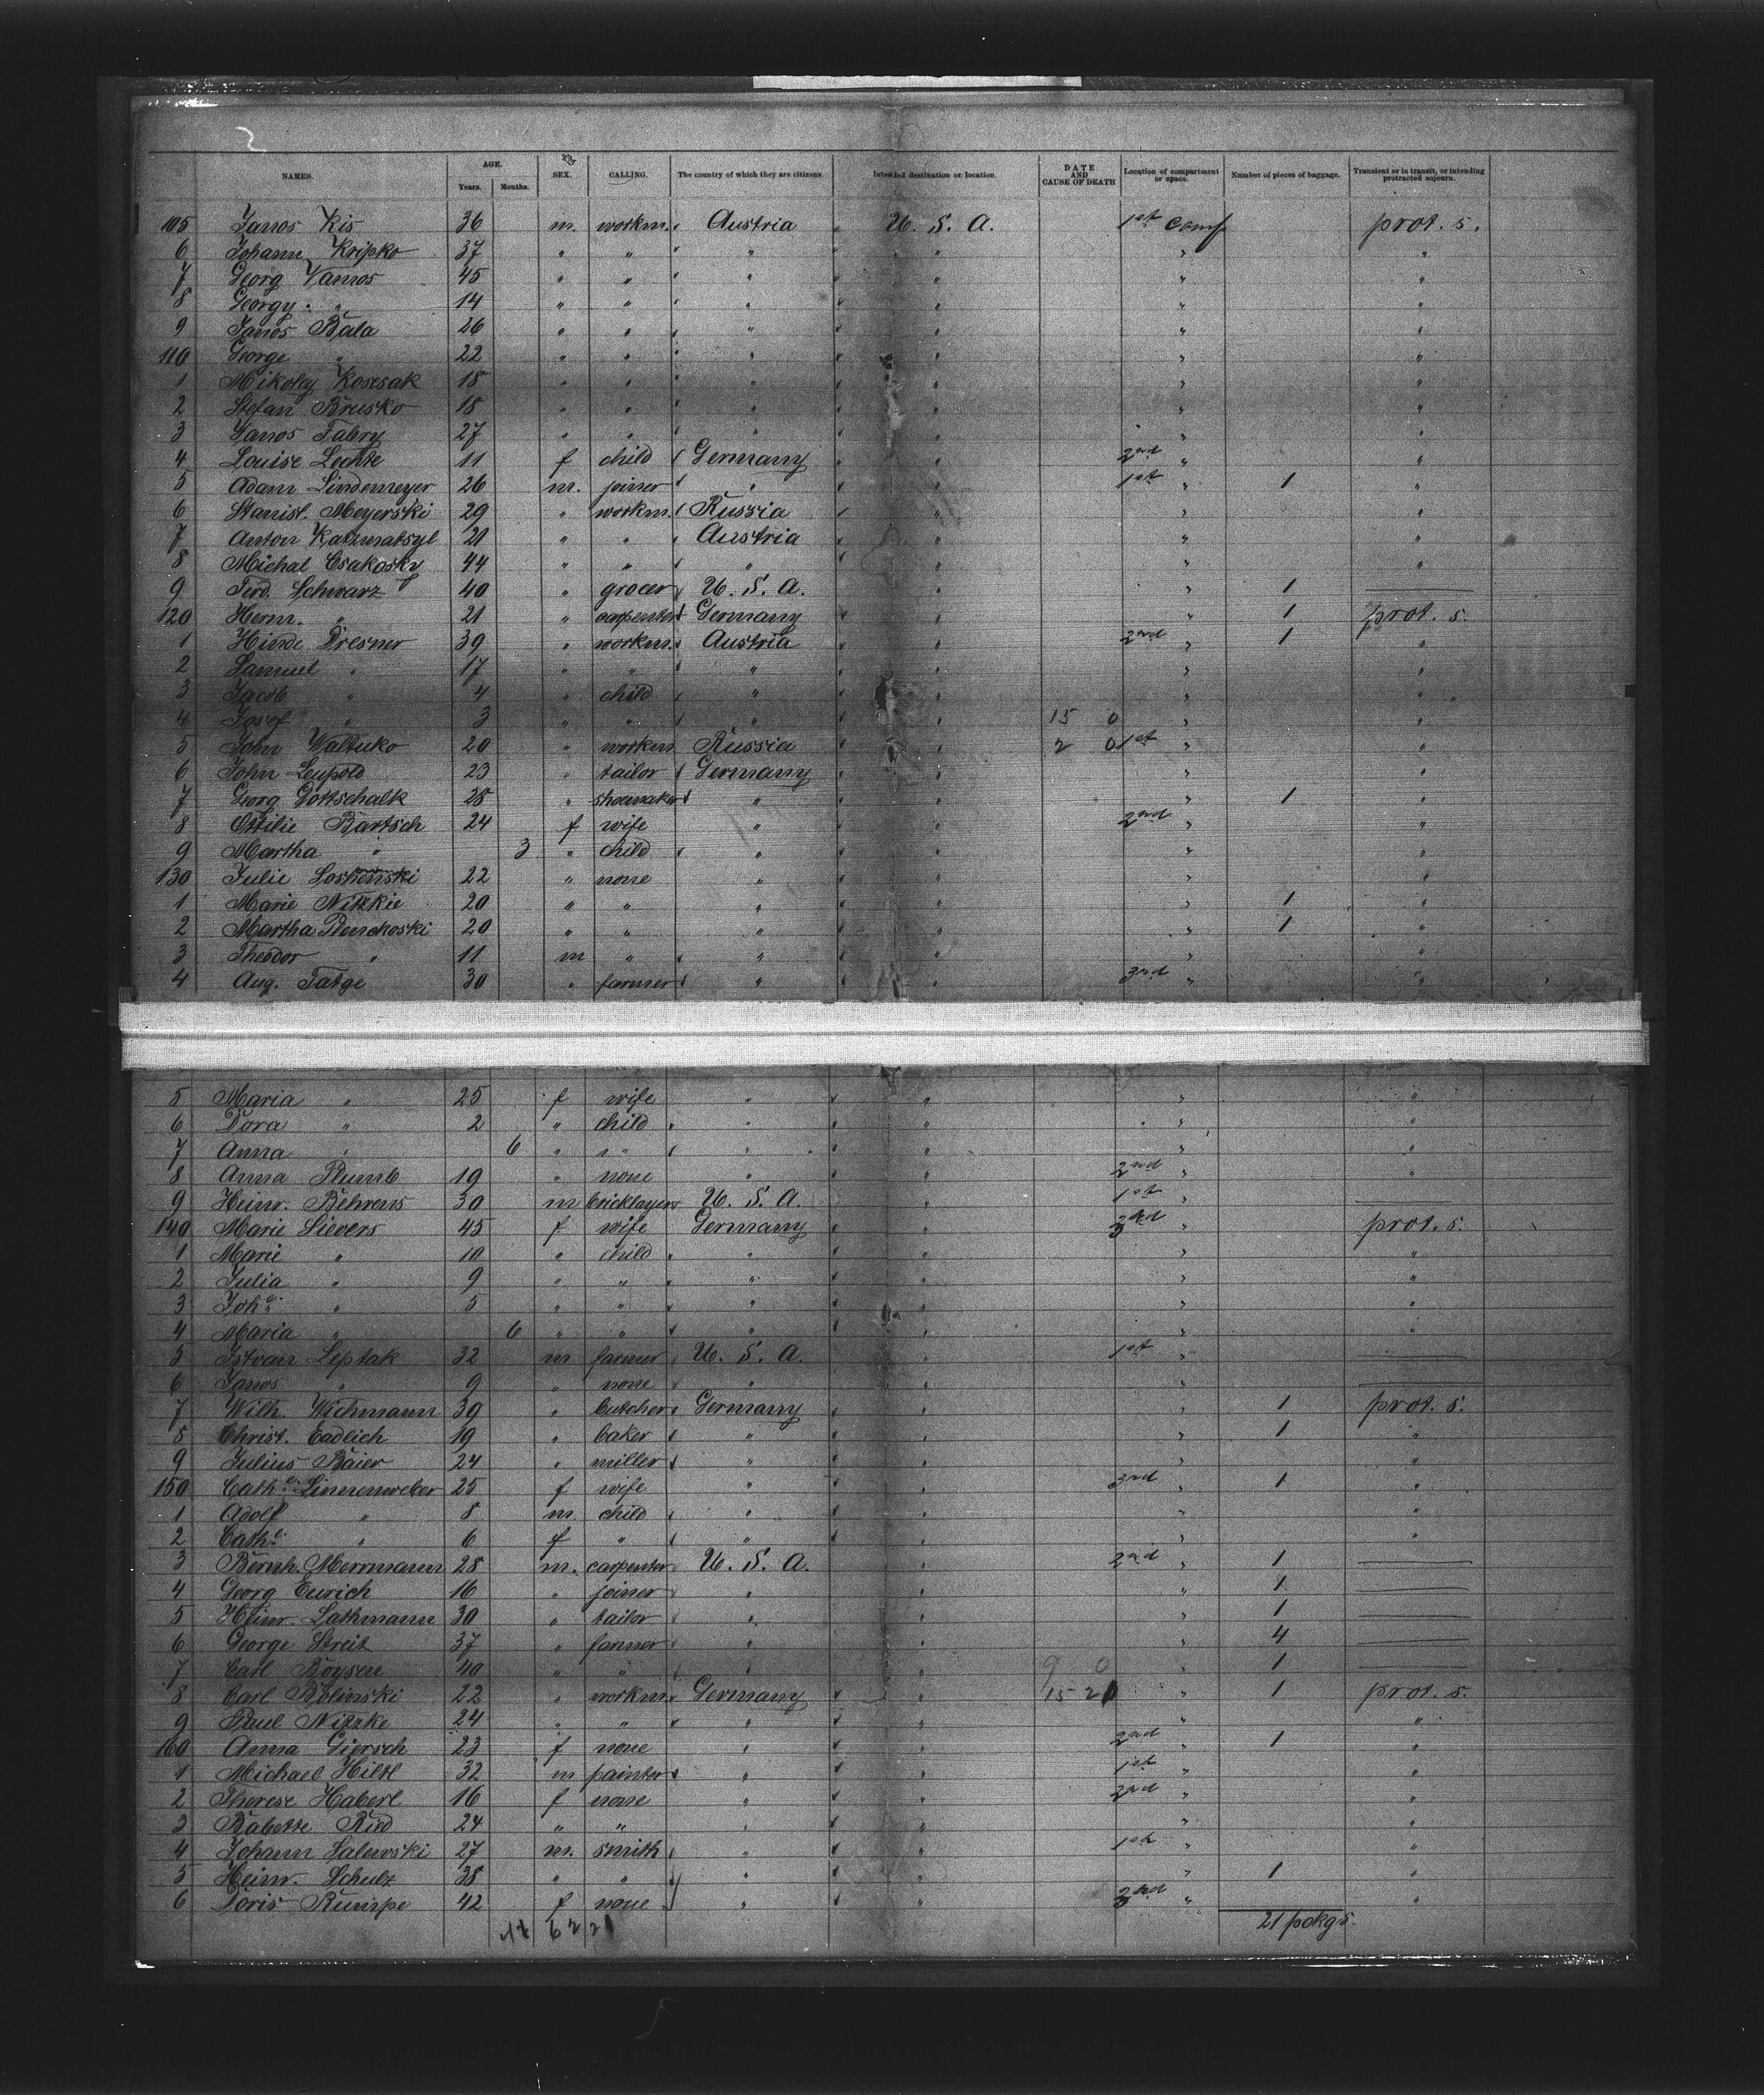 NAMES. AGE. Years. Months. SEX. CALLING. The country of which they are citizens. Intended destination or location. DATE AND CAUSE OF DEATH Location of compartment or space. Number of pieces of baggage. Transient or in transit, or intending protracted sojourn.
105 Janos Kis 36 m. workm. Austria U. S. A. 1st comp prot. s.
6 Johann Kripko 37 " " " " " "
7 Georg Vamos 45 " " " " " "
8 Georgy " 14 " " " " " "
9 Janos Bala 26 " " " " " "
110 George " 22 " " " " " "
1 Mikolaj Koscsak 18 " " " " " "
2 Stefan Brusko 18 " " " " " "
3 Janos Fabry 27 " " " " " "
4 Louise Lechte 11 f child Germany " 2nd " "
5 Adam Lindemeyer 26 m. joiner " " 1st " 1 "
6 Stanisl. Meyerski 29 " workm. Russia " " "
7 Anton Kaczmatsyl 21 " " Austria " " "
8 Michal Csakosky 44 " " " " " "
9 Ferd. Schwarz 40 " grocer U. S. A. " " 1
120 Herm. " 21 " carpenter Germany " " 1 prot. s.
1 Hinde Dresner 39 " workm. Austria " 2nd " 1 "
2 Samuel " 17 " " " " " "
3 Jacob " 4 " child " " " "
4 Josef " 3 " " " " 15 0 " "
5 John Waltuko 20 " workm Russia " 2 0 1st " "
6 John Leupold 23 " tailor Germany " " "
7 Georg Gottschalk 28 " shoemaker " " " 1 "
8 Ottilie Bartsch 24 f wife " " 2nd " "
9 Martha " 3 " child " " " "
130 Julie 22 " none " " " "
1 Marie Nitzkie 20 " " " " " 1 "
2 Martha 20 " " " " " 1 "
3 Theodor " 11 m " " " " "
4 Aug. Tatge 30 " farmer " " 3rd " "
5 Maria " 25 f wife " " " "
6 Dora " 2 " child " " " "
7 Anna " 6 " " " " " "
8 Anna Plumb 19 " none " " 2nd " "
9 Heinr. Behrens 30 m bricklayer U. S. A. " 1st "
140 Marie Sievers 45 f wife Germany " 3rd " prot. s.
1 Marie " 10 " child " " " "
2 Julia " 9 " " " " " "
3 Johe. " 5 " " " " " "
4 Maria " 6 " " " " " "
5 Istvan Leptak 32 m farmer U. S. A. " 1st "
6 Janos " 9 " none " " "
7 Wilh. Wichmann 39 " butcher Germany " " 1 prot. s.
8 Christ. Eadlich 19 " baker " " " 1 "
9 Julius Baier 24 " miller " " " "
150 Cathe. Linnenweber 25 f wife " " 3rd " 1 "
1 Adolf " 8 m. child " " " "
2 Cathe. " 6 f " " " " "
3 Bernh. Merrmann 28 m. carpenter U. S. A. " 2nd " 1
4 Georg Eurich 16 " joiner " " " 1
5 Heinr. Lathmann 30 " tailor " " " 1
6 George Streit 37 " farmer " " " 4
7 Carl Boysen 40 " " " " 9 0 " 1
8 Carl Bolinski 22 " workm. Germany " 15 21 " 1 prot. s.
9 Paul Nitzke 24 " " " " " "
160 Anna Giersch 23 f none " " 2nd " 1 "
1 Michael Hiltl 32 m painter " " 1st " "
2 Therese Haberl 16 f none " " 2nd " "
3 Babette Bird 24 " " " " " "
4 Johann Salewski 27 m. smith " " 1st " "
5 Heinr. Schulz 38 " " " " " 1 "
6 Doris Rumpe 42 f none " " 3rd " "
17 62 21 21 pckgs.